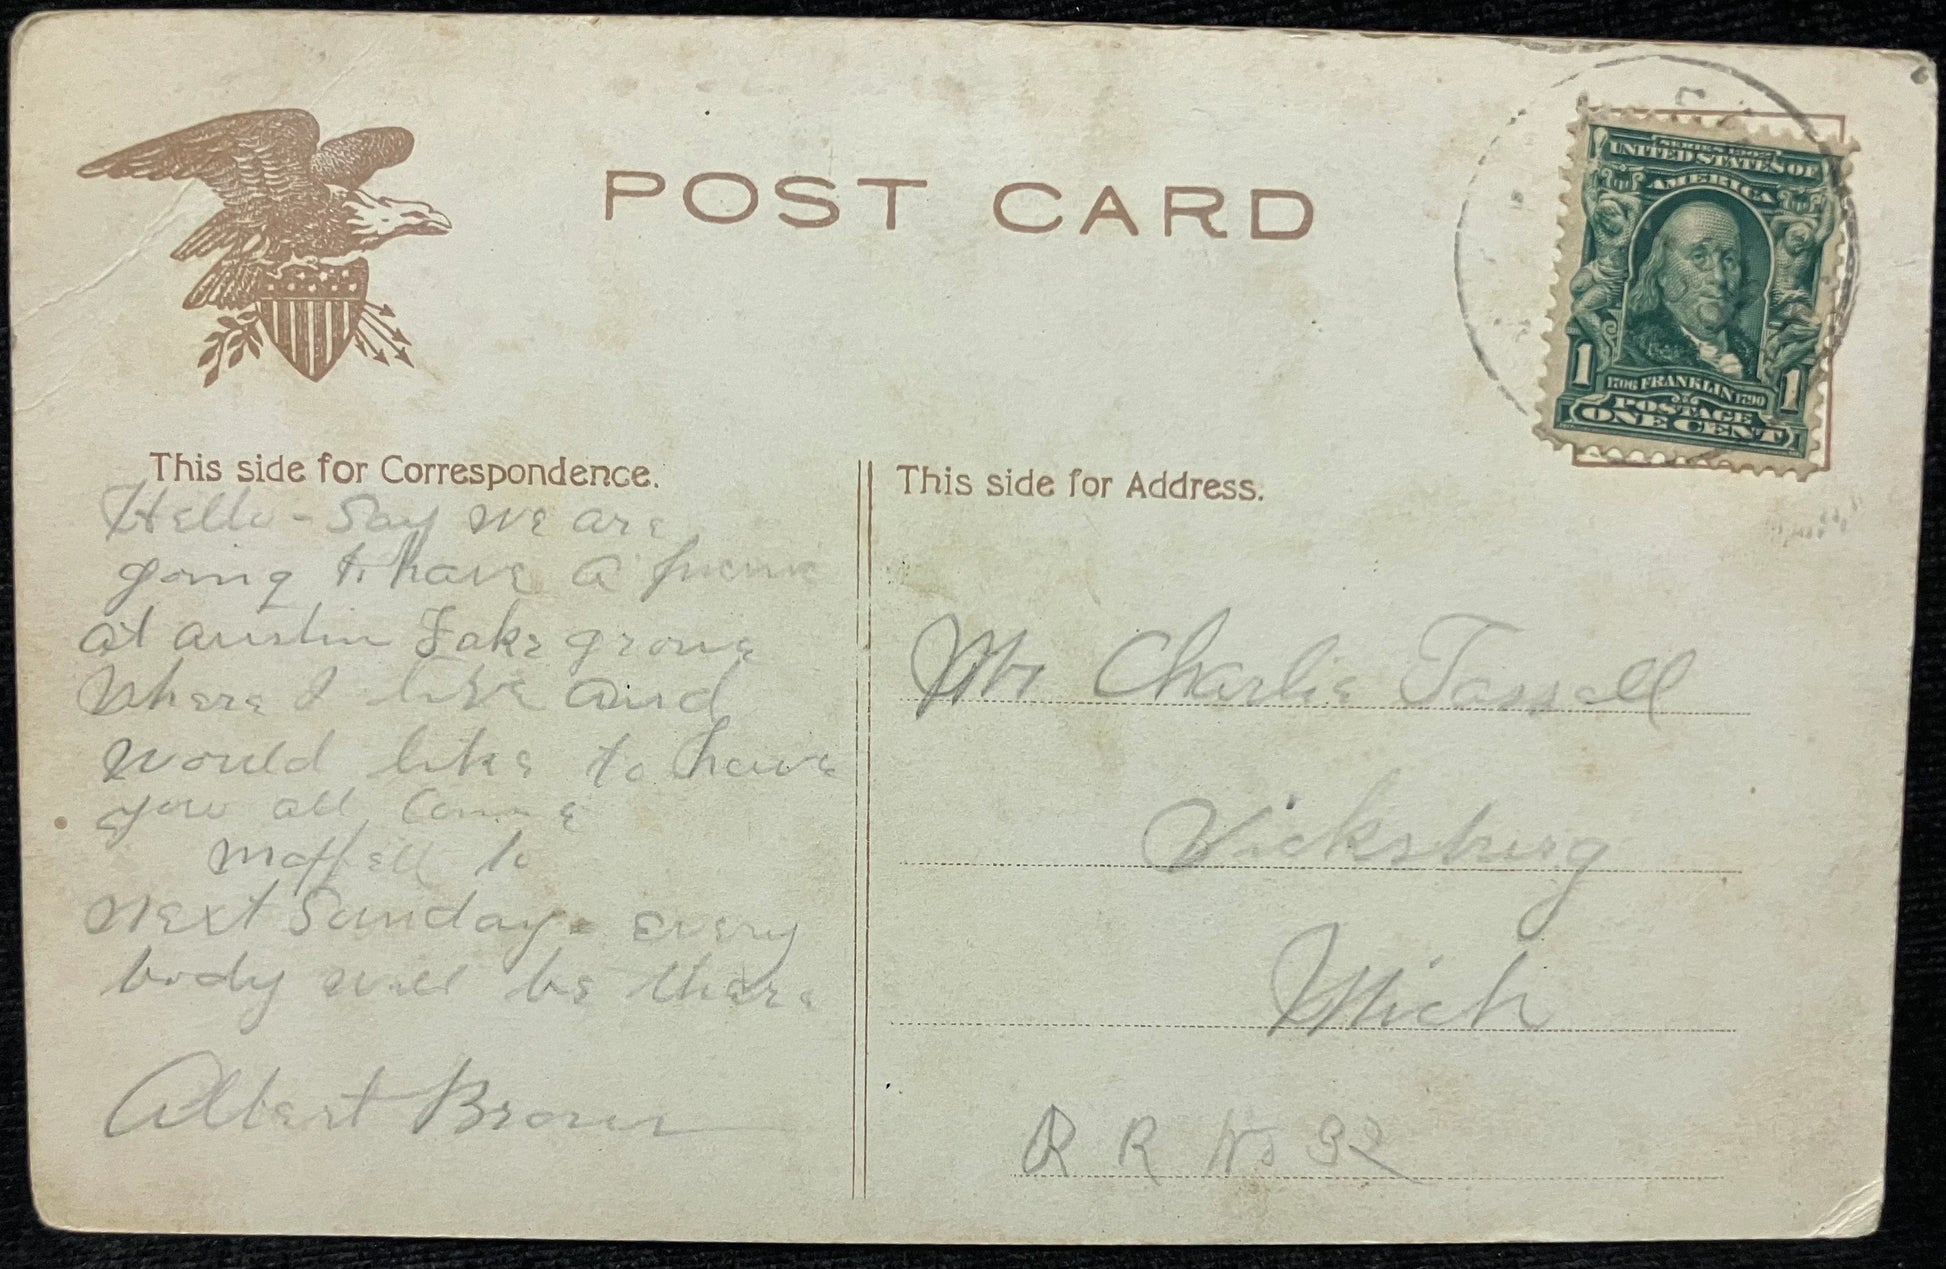 POST CARD
SERIES 1902
UNITED STATES OF
AMERICA
1706 FRANKLIN 1790
1 1
POSTAGE
ONE CENT
This side for Correspondence.
Hello - Say we are
going to have a picnic
at austin Lake grove
Where I live and
would like to have
you all come
to
next Sunday - every
body will be there
Albert Brown
This side for Address.
Mr Charlie Tassell
Vicksburg
Mich
R R No 32